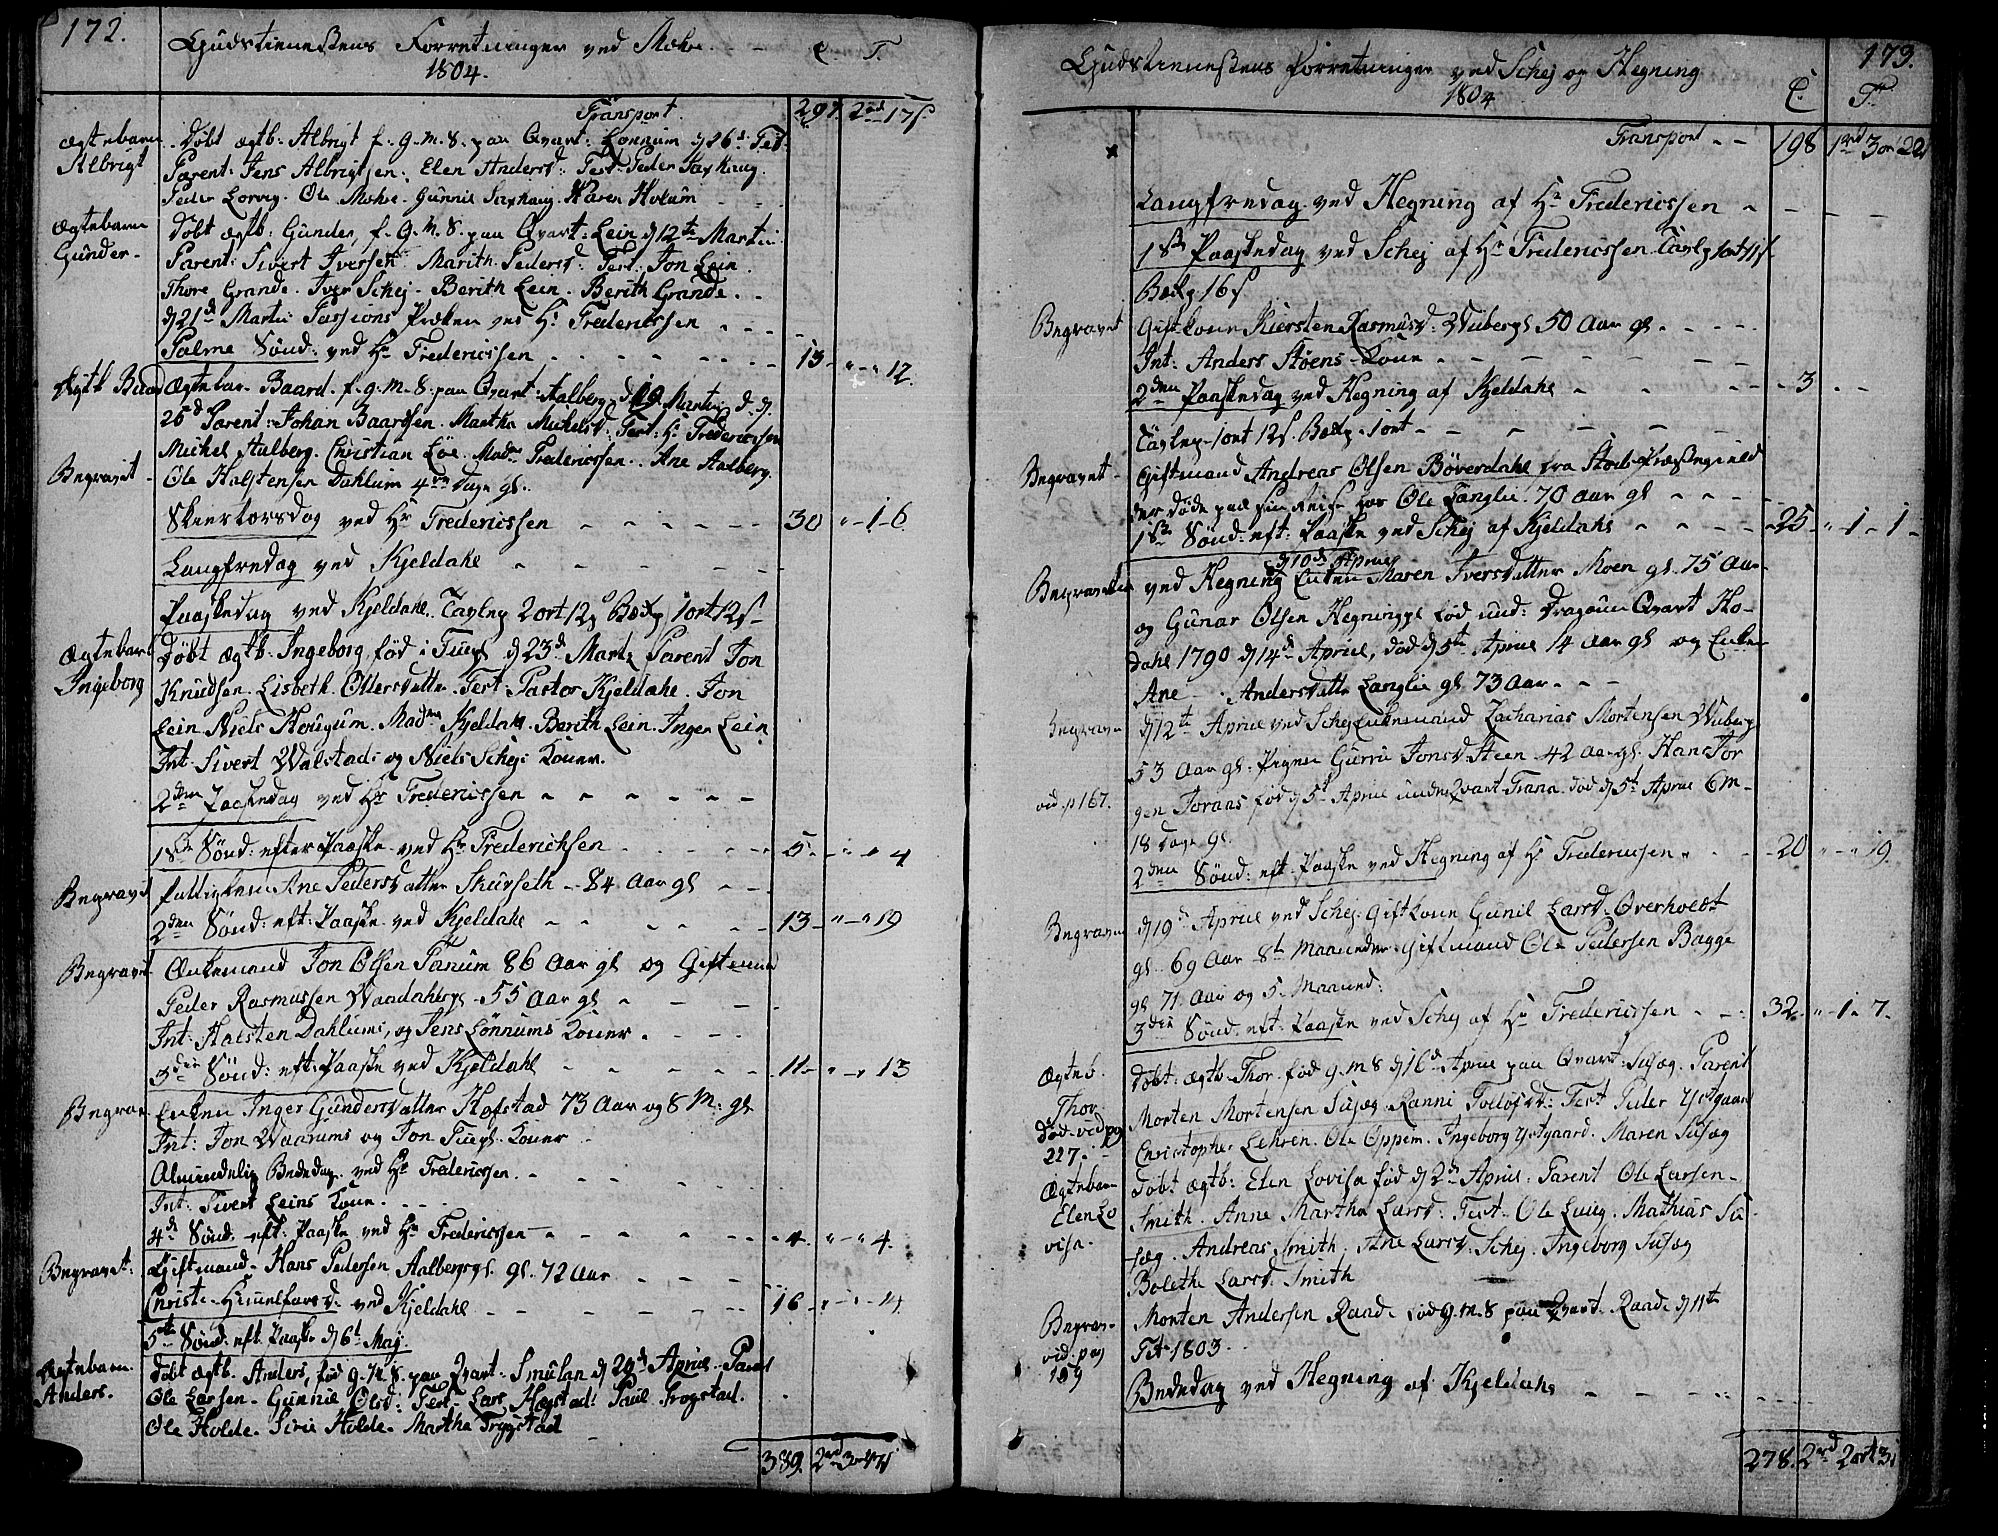 172.
Gudstienestens Forretninger ved Mære
1804.
C. T.
Transport. 297. 2rd 17s.
Ægtebarn
Albrigt
Døbt ægtb. Albrigt f. g. m. 8. paa Qvart: Lønnum d 26d Feb.
Parent: Jens Albrigtsen. Elen Andersd: Test: Peder Saxhaug.
Peder Lorvig. Ole Mære. Gunnil Saxhaug. Karen Holum
Ægtebarn
Gunder.
Døbt ægtb: Gunder, f. g. m. 8. paa Qvart: Lein d 12te Martii
Parent: Sivert Iversen. Marith Pedersd: Test: Jon Lein.
Thore Grande. Iver Schej. Berith Lein. Berith Grande.
d 21d Martii Passions Præken ved Hr Fredericssen
Palme Sønd: ved Hr Fredericssen 13 " " 12.
Ægtb Baard
Ægtebar. Baard. f. g. m. 8. paa Qvart: Aalberg d 19 Martii d. d.
25d Parent: Johan Baardsen. Martha Michelsd: Test: Hr Fredericssen
Michel Aalberg. Christian Löe. Madm Fredericssen. Ane Aalberg.
Begravet
Ole Halstensen Dahlum 4re Dage gl.
Skiertorsdag ved Hr Fredericssen 30 " 1 6
Langfredag ved Kjeldahl
Paaskedag ved Kjeldahl. Tavlep 2 ort 12s Bækp 1 ort 12s
Ægtebarn
Ingeborg
Døbt ægtb. Ingeborg født i Tuepl d 23d Martz Parent Jon
Knudsen. Lisbeth Ollersdatter. Test Pastor Kjeldahl. Jon
Lein Niels Heugum. Madm Kjeldahl. Berith Lein. Inger Lein
Int: Sivert Walstads og Niels Schejs Koner.
2den Paaskedag ved Hr Fredericssen
1ste Sønd: efter Paaske ved Hr Frederichsen 5 " " 4
Begravet
Fattiglem Ane Pedersdatter Skurseth 84 Aar gl
2den Sønd: eft: Paaske ved Kjeldahl 13 " " 19
Begravet
Enkemand Jon Olsen Tanum 86 Aar gl og Giftmand
Peder Rasmussen Waadahlspl. 55 Aar gl
Int: Halsten Dahlums, og Jens Lönnums Koner.
3die Sønd: eft: Paaske ved Kjeldahl 11 " " 13
Begrav
Enken Inger Gundersdatter Hofstad 73 Aar og 8 M: gl
Int: Jon Waarums og Jon Tuepl. Koner
Almindelig Bededag ved Hr Fredericssen.
Int: Sivert Leins Kone.
4d Sønd. eft: Paaske ved Hr Fredericssen 4 " " 4.
Begravet:
Giftmand. Hans Pedersen Aalbergspl. gl. 72 Aar
Christi Himmelfarsd: ved Kjeldahl 16 " " 14
5te Sønd: eft Paaske d 6t Maj
Ægtebarn
Anders.
Døbt ægtb. Anders, født g. m. 8. paa Qvart: Smulan d 29d Aprill. Parent
Ole Larsen. Gunnil Olsd: Test Lars Hægstad: Paul Trogstad.
Ole Holde. Siri Holde. Martha Trogstad
389. 2rd 3ort 17s
173.
Gudstienestens Forretninger ved Schej og Hegning
1804
C. T.
Transport 198 1rd 3ort 22
Langfredag ved Hegning af Hr Fredericssen
1ste Paaskedag ved Schej af Hr Fredericssen. Tavlp 1 ort 11s
Bækp 16s
Begravet
Giftkone Kiersten Rasmusd: Wubergs 50 Aar gl.
Int: Anders Stöens Kone
2den Paaskedag ved Hegning af Kjeldahl 3
Tavlep 1 ort 12s. Bækp. 1 ort
Begravet
Giftmand Andreas Olsen Böverdahl fra Stods Præstegield
der døde paa sin Reise hos Ole Langlie 70 Aar gl
1ste Sønd: eft: Paaske ved Schej af Kjeldahl 25 " 1 1
d 10d Aprill
Begravelse
ved Hegning Enken Maren Iversdatter Moen gl. 75 Aar
og Gunar Olsen Hegningpl født und: Dragoun Qvart Ho-
dahl 1790 d 14d Aprill, død d 5te Aprill 14 Aar gl og Enke
Ane Andersdatter Langlie gl 73 Aar.
Begrave
d 12te Aprill ved Schej Enkemand Zacharias Mortensen Wuberg
vid. p 167.
53 Aar gl. Pigen Gurru Jonsd Steen 42 Aar gl. Hans Jör
gen Joraas født d 5d Aprill under Qvart Trana død d 5t Aprill 6 M
18 Dage gl.
2den Sønd: eft. Paaske ved Hegning af Hr Fredericssen 20 " " 19.
Begrave
d 19d Aprill ved Schej: Giftkone Gunil Larsd: Overholdt
gl. 69 Aar 8t Maaneder. Giftmand Ole Pedersen Bagge
gl 71 Aar og 5 Maaned:
3die Sønd: eft: Paaske ved Schej af Hr Fredericssen 32 " 1 7
Ægteb.
Thor
død vid pg
227.
Døbt: ægtb Thor. født g. m 8 d 16d Aprill paa Qvart: Susæg. Parent
Morten Mortensen Susæg. Ranni Tollofsd: Test Peder Ystgaard
Christopher Lehren. Ole Oppem. Ingeborg Ystgaard. Maren Susæg
Ægtebarn
Elen Lo
visa.
Døbt ægtb: Elen Lovisa født d 2d Aprill. Parent Ole Larsen
Smith. Anne Martha Larsd: Test. Ole Lunig. Mathias Su-
sæg. Andreas Smith. Ane Larsd. Schej. Ingeborg Susæg
Bolethe Larsd: Smith
Begrav
vid. pag
159
Morten Andersen Raade født g. m. 8 paa Qvart. Raade d 11te
Feb 1803.
Bededag ved Hegning af Kjeldahl
278. 2rd 2ort 3s